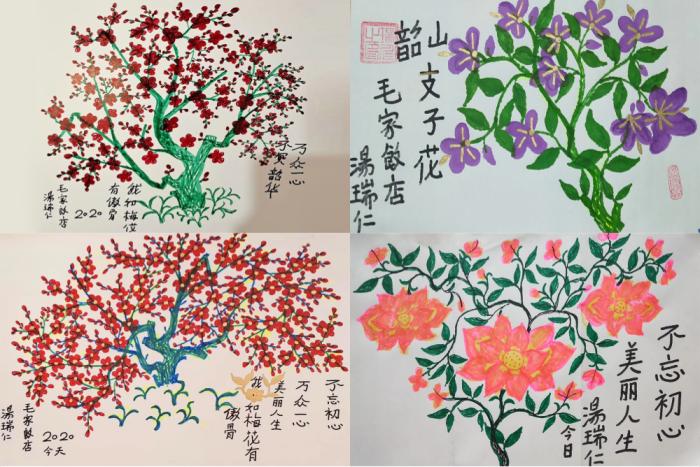 万众一心
不负韶华
我和梅花
有傲骨
2020
毛家飯店
湯瑞仁
韶山
支子花
毛家飯店
湯瑞仁
不忘初心
万众一心
美丽人生
我如梅花有
傲骨
2020
今天
毛家飯店
湯瑞仁
不忘初心
美丽人生
湯瑞仁
今日